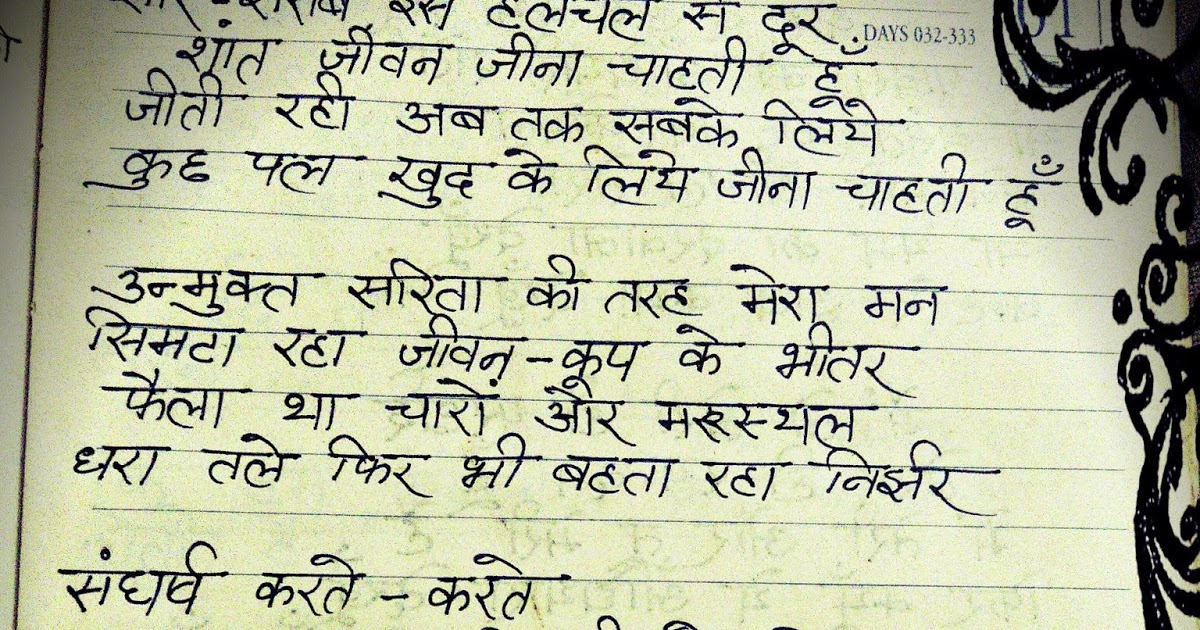 शोर-शराबे इस हलचल से दूर
DAYS 032-333
शांत जीवन जीना चाहती हूँ
जीती रही अब तक सबके लिये
कुछ पल खुद के लिये जीना चाहती हूँ
उन्मुक्त सरिता की तरह मेरा मन
सिमटा रहा जीवन-कूप के भीतर
फैला था चारों और मरूस्थल
धरा तले फिर भी बहता रहा निर्झर
संघर्ष करते-करते